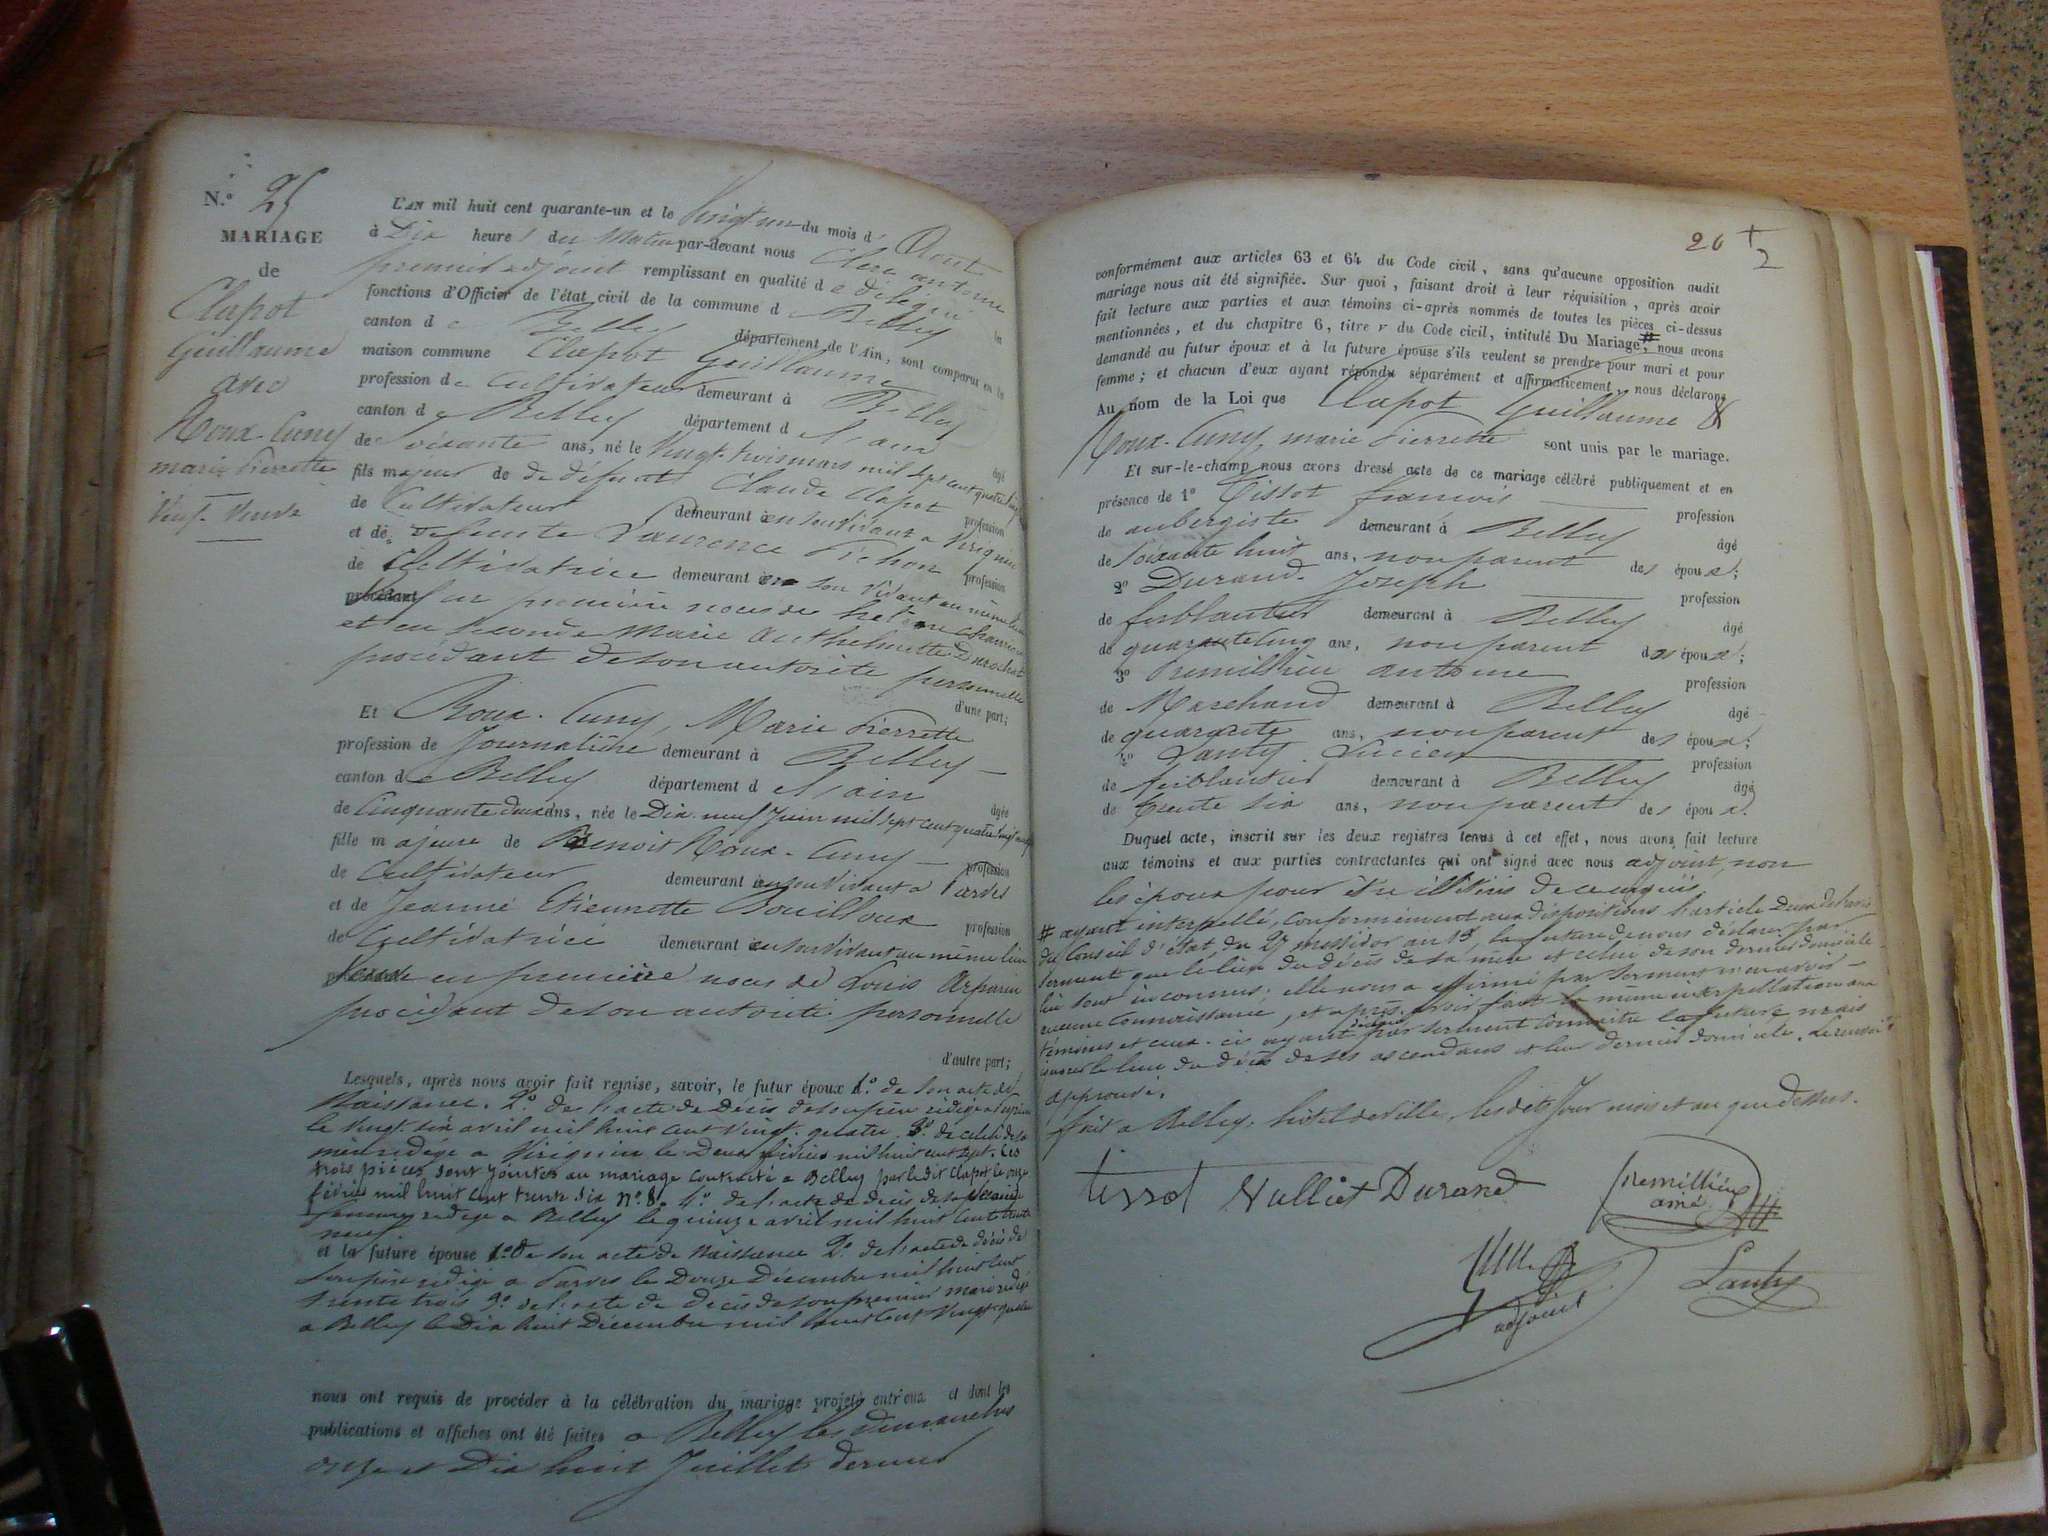 N.o 25
MARIAGE
de
Clapot
Guillaume
avec
Roux-Cuny
marie Pierrette
Veuf- Veuve
L'AN mil huit cent quarante-un et le Vingt un du mois d'Août
à Dix heures du Matin par-devant nous Clerc antoine
premier adjoint remplissant en qualité de délégué les
fonctions d'Officier de l'état civil de la commune d Belley
canton de Belley département de l'Ain, sont comparus en la
maison commune Clapot Guillaume
profession de Cultivateur demeurant à Belley
canton de Belley département de l'ain âgé
de soixante ans, né le Vingt trois mars mil sept cent quatre vingt
fils majeur de de défunt Claude Clapot profession
de Cultivateur demeurant en son vivant a Virignin
et de defunte Laurence Pichon profession
de Cultivatrice demeurant en son vivant au même lieu
Veuf en première noces de helène
et en seconde Marie Anthelmette
procédant de son autorité personnelle
d'une part;
Et Roux-Cuny, Marie Pierrette
profession de Journalière demeurant à Belley
canton de Belley département de l'ain âgée
de Cinquante deux ans, née le Dix neuf Juin mil sept cent quatre vingt neuf
fille majeure de Benoit Roux-Cuny profession
de Cultivateur demeurant en son vivant a Parves
et de Jeanne Etiennette Bouilloux profession
de Cultivatrice demeurant en son vivant au même lieu
Veuve en première noces de Louis Arparin
procédant de son autorité personnelle
d'autre part;
Lesquels, après nous avoir fait remise, savoir, le futur époux 1.o de son acte de
Naissance. 2.o de l'acte de Décès de son père rédigé a Virignin
le vingt six avril mil huit cent vingt quatre. 3.o de celui de sa
mère rédigé a Virignin le Deux février mil huit cent sept. Ces
trois pièces sont jointes au mariage contracté a Belley par le dit Clapot le onze
février mil huit cent trente six n.o 8. 4.o de l'acte de décès de sa seconde
femme rédigé a Belley le quinze avril mil huit cent trente
neuf
et la future épouse 1.o de son acte de Naissance 2.o de l'acte de décès de
son père rédigé a Parves le Douze Décembre mil huit cent
trente trois 3.o de l'acte de décès de son premier mari rédigé
a Belley le Dix huit Décembre mil huit cent Vingt quatre
nous ont requis de procéder à la célébration du mariage projeté entr'eux et dont les
publications et affiches ont été faites a Belley les dimanches
onze et Dix huit Juillet dernier
26 + 2
conformément aux articles 63 et 64 du Code civil, sans qu'aucune opposition audit
mariage nous ait été signifiée. Sur quoi, faisant droit à leur réquisition, après avoir
fait lecture aux parties et aux témoins ci-après nommés de toutes les pièces ci-dessus
mentionnées, et du chapitre 6, titre v du Code civil, intitulé Du Mariage; # nous avons
demandé au futur époux et à la future épouse s'ils veulent se prendre pour mari et pour
femme; et chacun d'eux ayant répondu séparément et affirmativement, nous déclarons
Au nom de la Loi que Clapot Guillaume &
Roux-Cuny, marie Pierrette sont unis par le mariage.
Et sur-le-champ nous avons dressé acte de ce mariage célébré publiquement et en
présence de 1o Tissot francois profession
de aubergiste demeurant à Belley âgé
de soixante huit ans, non parent des époux;
2o Durand Joseph profession
de ferblantier demeurant à Belley âgé
de quarante cinq ans, non parent des époux;
3o Premillieu antoine profession
de Marchand demeurant à Belley âgé
de quarante ans, non parent des époux;
4o Lanty Lucien profession
de ferblantier demeurant à Belley âgé
de trente six ans, non parent des époux.
Duquel acte, inscrit sur les deux registres tenus à cet effet, nous avons fait lecture
aux témoins et aux parties contractantes qui ont signé avec nous adjoint, non
les époux pour être illitérés de ce enquis
# ayant interpellé, conformément aux dispositions l'article Deux de l'avis
du Conseil d'état du 27 messidor an 13, la future de nous déclarer par
serment que le lieu du décès de sa mère et celui de son dernier domicile
lui sont inconnus; elle nous a affirmé par serment n'en avoir
aucune connaissance, et après avoir fait la même interpellation aux
témoins et ceux-ci ayant déclaré par serment connaitre la future mais
ignorer le lieu du décès de ses ascendans et leur dernier domicile. Le renvoi
approuvé.
fait a Belley, hôtel de Ville, les dits Jour mois et an que dessus.
tissot Vulliet Durand Premillieu
ainé
Lanty
adjoint